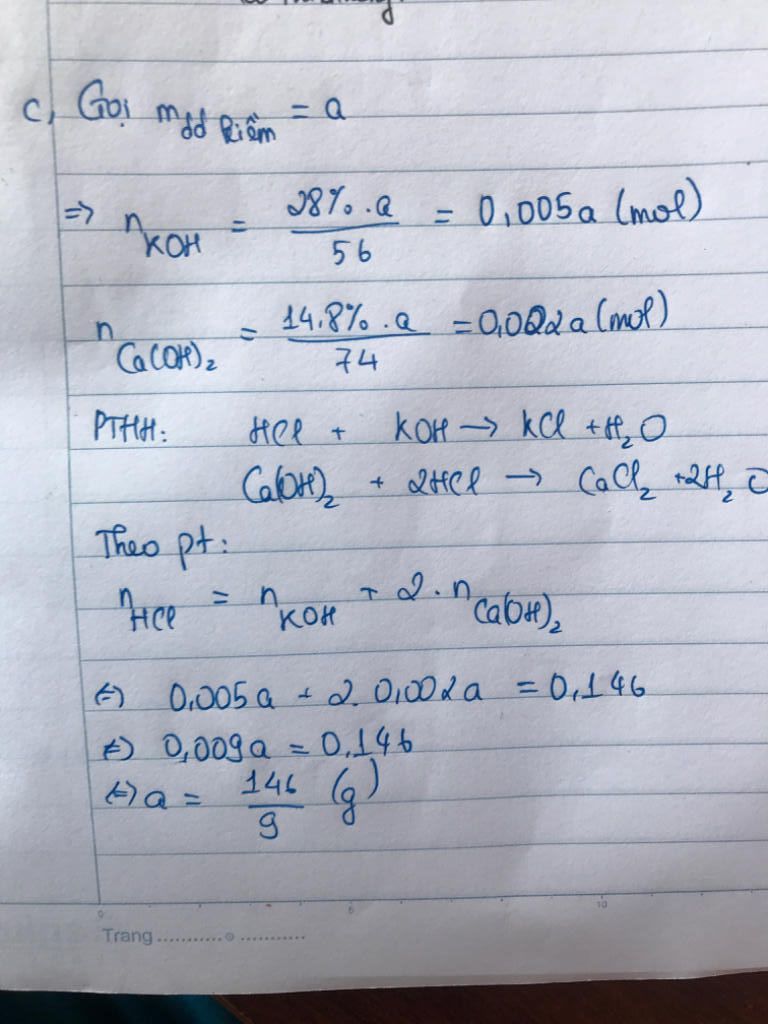 c, Gọi m dd kiềm = a
=> n KOH = 28% . a / 56 = 0,005a (mol)
n Ca(OH)₂ = 14.8% . a / 74 = 0,002a (mol)
PTHH: HCl + KOH → KCl + H₂O
Ca(OH)₂ + 2HCl → CaCl₂ + 2H₂O
Theo pt:
n HCl = n KOH + 2 . n Ca(OH)₂
<=> 0,005a + 2. 0,002a = 0,146
<=> 0,009a = 0,146
<=> a = 146 / 9 (g)
0 5 10
Trang ........... o ...........